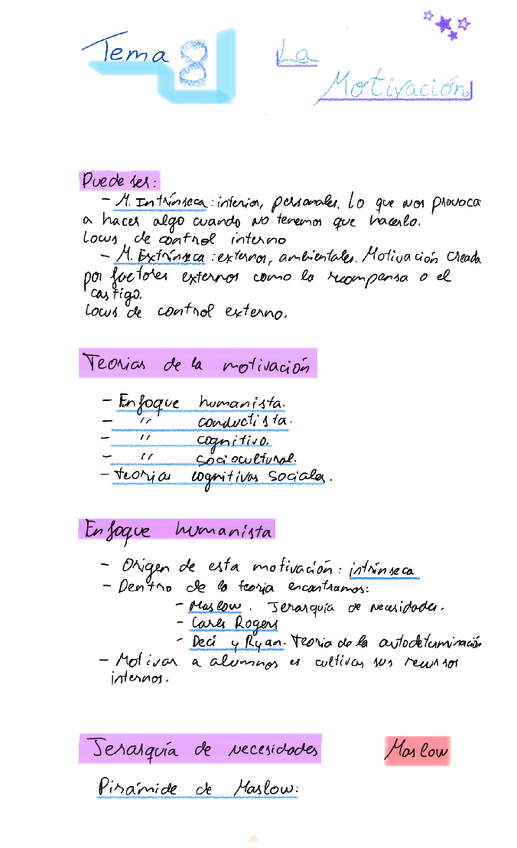 Tema 8
La
Motivación
Puede ser:
- M. Intrínseca: interior, personales. Lo que nos provoca
a hacer algo cuando no tenemos que hacerlo.
Locus de control interno
- M. Extrínseca: externos, ambientales. Motivación creada
por factores externos como la recompensa o el
castigo.
Locus de control externo.
Teorías de la motivación
- Enfoque humanista.
- " conductista.
- " cognitivo.
- " sociocultural.
- Teorías cognitivas sociales.
Enfoque humanista
- Origen de esta motivación: intrínseca
- Dentro de la teoría encontramos:
- Maslow. Jerarquía de necesidades.
- Carls Rogers
- Deci y Ryan. Teoría de la autodeterminación
- Motivar a alumnos es cultivar sus recursos
internos.
Jerarquía de necesidades Maslow
Pirámide de Maslow: